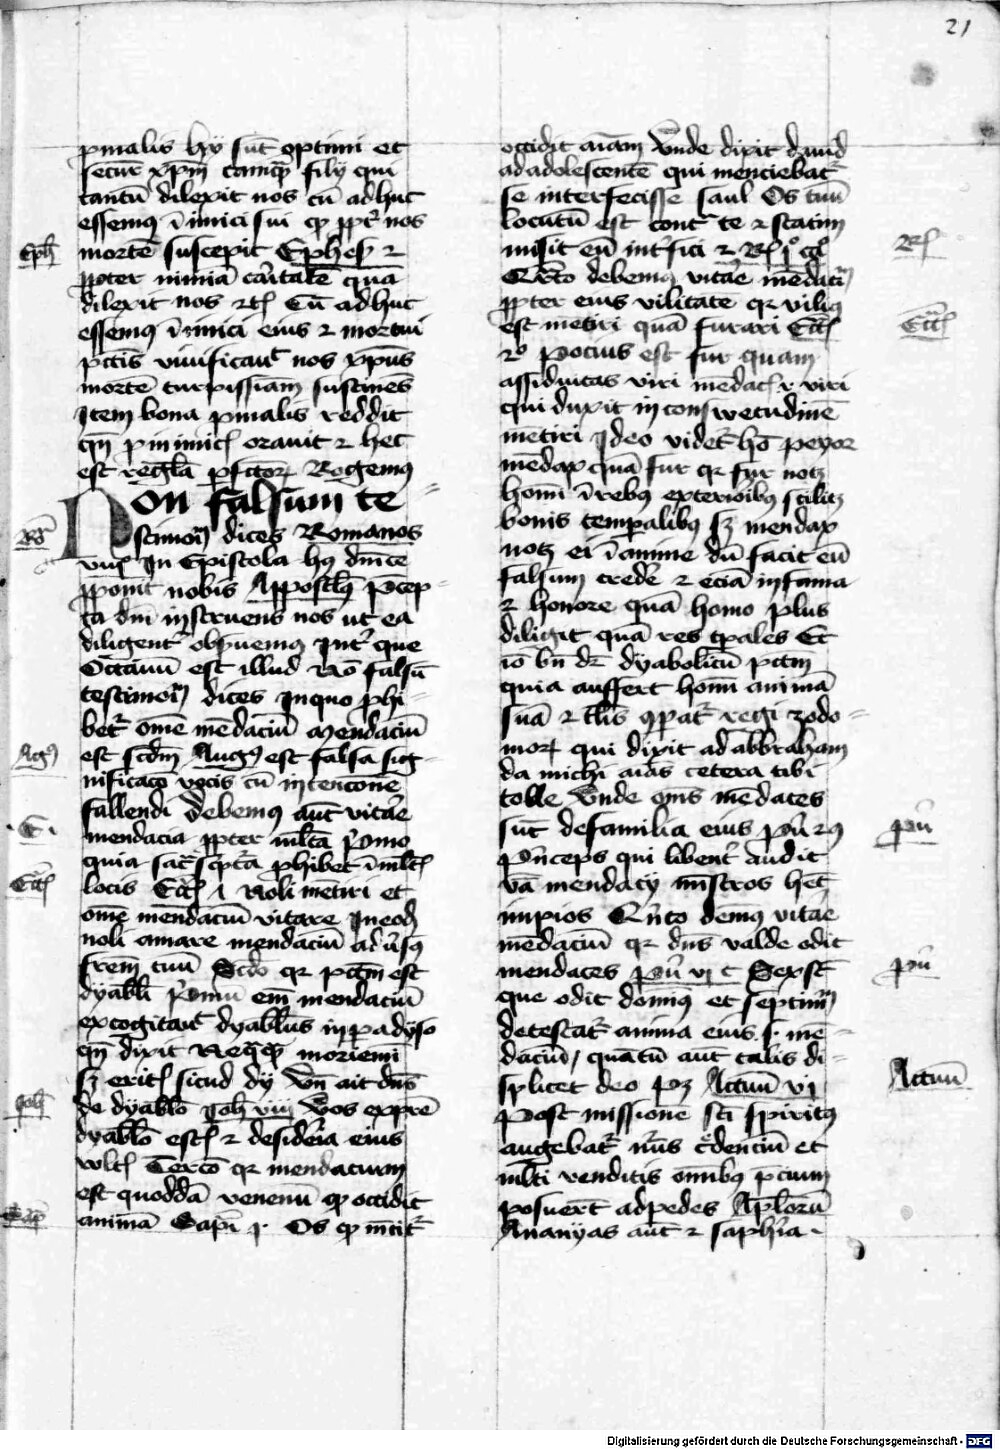 21
pmalis hy sūt optimi et
secūt xp̄m tamq̄ filij qui
tantū dilexit nos cū adhuc
essemꝰ īimici sui qꝫ ꝓpt̄ nos
Eph̄
mortē suscepit Ephes̄ ꝛ
ꝓpter nimiā caritatē quā
dilexit nos ꝛc̄ Cū adhuc
essemꝰ īimici eius ꝛ mortui
pctīs viuificauit nos xp̄us
mortē turpissimam sustinēs
Item bona pmalis reddit
qn̄ ꝓ inimicis orauit ꝛ hec
est regula ꝑfctor̄ Rogemꝰ
Non falsum te
Ro
stimoīū dices Romanos
In Epistola hꝰ dn̄ice
ꝓponit nobis Appostlꝰ p̄cep
ta dn̄i instruens nos ut ea
diligent̄ obseruemꝰ Int̄ que
Octauū est illud No falsū
testimoīū dices In quo phi
bet̄ omē mēdaciū Mendaciū
Agꝰ
est scdm̄ Augꝰ est falsa sig
nificaco vocis cū intencone
fallendi debemꝰ aut vitāe
mendacia ꝓpter mlta p̄omo
quia sac̄ sc̄pta phibet ī mltꝭ
Ecc̄
locis Ecc̄ Noli mētiri et
ome mendaciū vitare In eodē
noli amare mendaciū adūsꝰ
frem̄ tuū Scdo qr pctm̄ est
dyabli p̄omū em̄ mendaciū
excogitauit dyablus in padyso
qn̄ dixit Neqꝫ moriemi
sꝫ eritis sicud dy vn̄ ait dn̄s
Joh̄
de dyablo Joh̄ viij Vos ex pr̄e
dyablo estꝭ ꝛ desideria eius
vultꝭ Tercō qr mendacium
est quoddā venenū qꝫ occidit
Sap̄
animā Sapī j Os qꝫ mētit̄
occidit aīam Vnde dixit dauid
ad adolescentē qui menciebat̄
se interfecisse saul Os tuū
locutū est cont̄ te ꝛ statim
Rꝭ
misit eū int̄fici
Qrto debemꝰ vitāe mēdaciū
ꝓpter eius vilitate qr viliꝰ
Ecc̄
est mētiri quā furari Ecc̄
Pocius est fur quam
assiduitas viri mēdacꝭ viri
qui duxit in conswetudinē
mētiri Ideo videt̄ hō peyor
mēdax quā fur qr fur nocꝫ
homī ī rebꝰ exterioibꝰ scilicꝫ
bonis temp̄alibꝰ sꝫ mendax
nocꝫ ei ī anime dū facit eū
falsum crede ꝛ eciā in fama
ꝛ honore quā homo plus
diligit quā res tp̄ales Et
iō bn̄ dr̄ dyabolicū pctm̄
quia auffert homī animā
suā ꝛ tlīs ꝯpat̄ regi zodo
mor̄ qui dixit ad abbraham
da michi aīas cetera tibi
tolle Vnde oms̄ mēdaces
pū̄
sūt de familia eius
p̄nceps qui libent̄ audit
v̄a mendacij mīstros het̄
impios Qn̄to demꝰ vitāe
mēdaciū qr dn̄s valde odit
pū̄
mendaces pū̄ vj c Sex st̄
que odit domiꝰ et septimū
detestat̄ anima eius s. mē
daciū, quātū aut̄ talis di
Actuū
splicet deo pꝫ Actuū vj
Post missione sc̄i spiritꝰ
augebat̄ nūs c̄dencīū et
mlti venditis omībꝰ p̄cium
posuer̄t ad pedes Apl̄orū
Ananyas aut̄ ꝛ saphīra
Digitalisierung gefördert durch die Deutsche Forschungsgemeinschaft - DFG